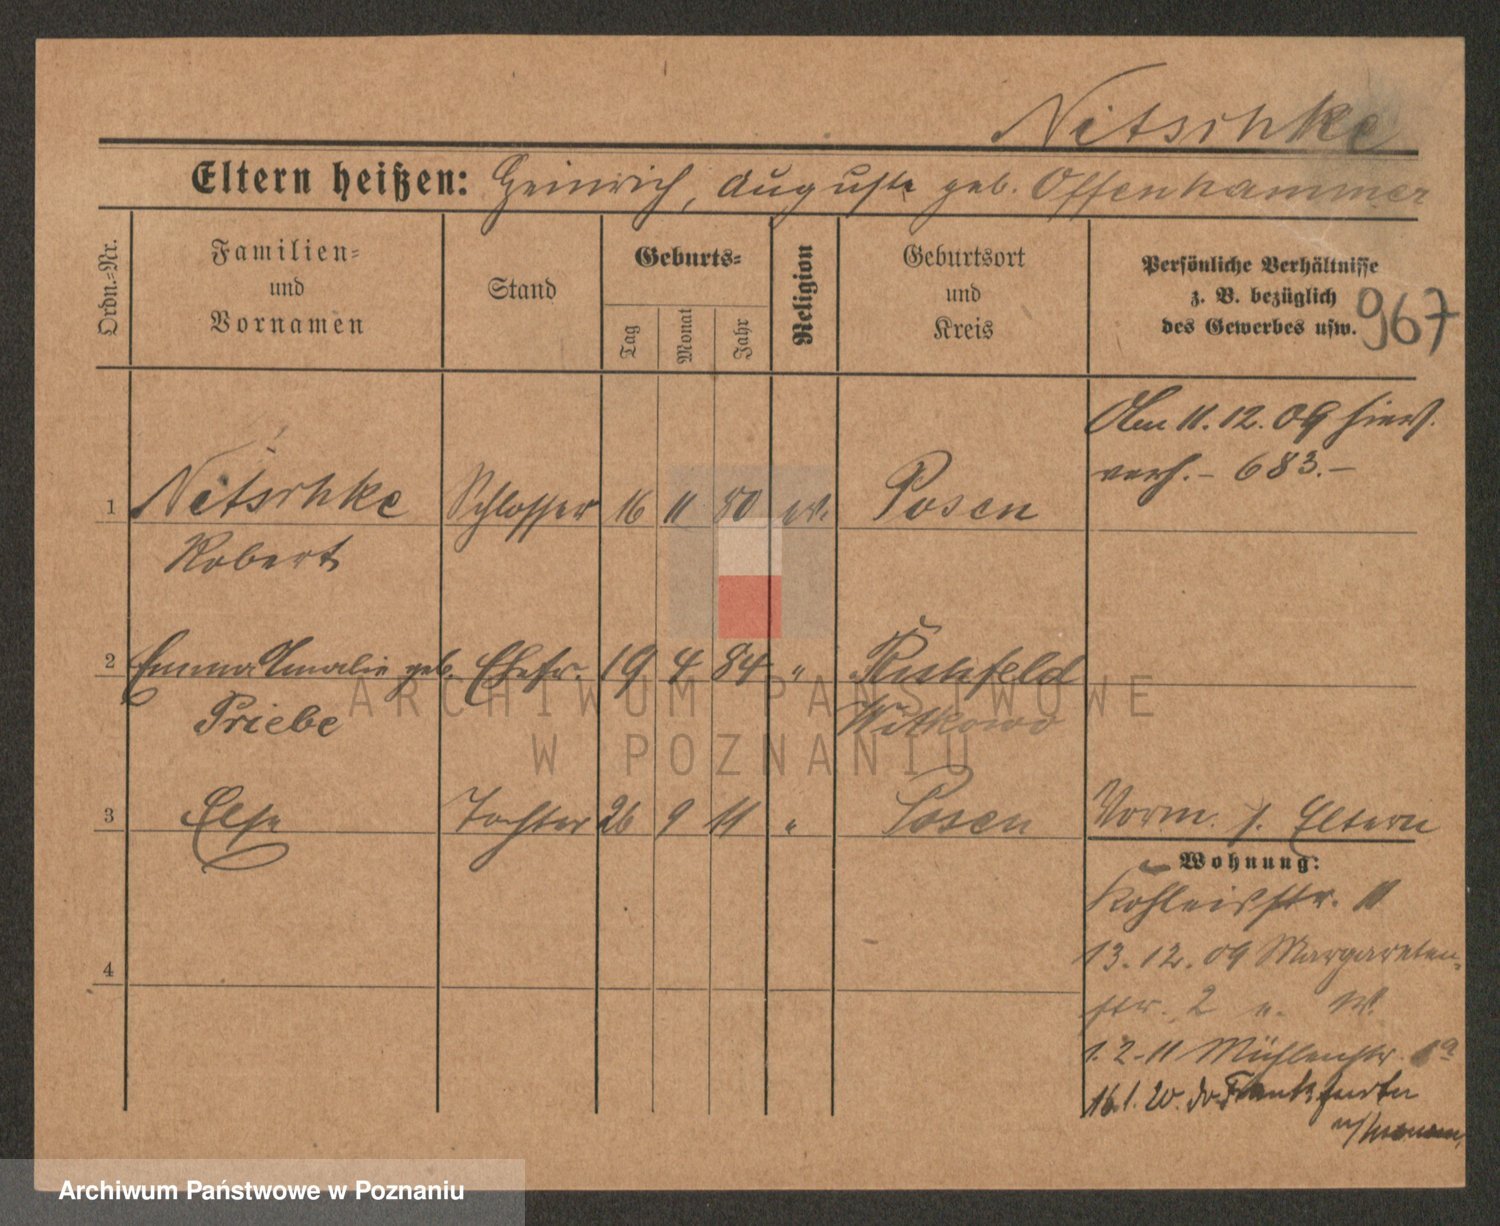 Nitschke
Eltern heißen: Heinrich, Auguste geb. Offenhammer
Ordn.-Nr.
Familien-
und
Vornamen
Stand
Geburts-
Tag
Monat
Jahr
Religion
Geburtsort
und
Kreis
Persönliche Verhältnisse
z. B. bezüglich
des Gewerbes usw.
967
Am 11.12.09 hier
verh. – 683. –
1 Nitschke Schlosser 16 11 80 ev. Posen
Robert
2 Emma Amalie geb. Ehefr. 19 4 84 "
Priebe Witkowo
3 Else Tochter 26 9 11 " Posen Vorm. s. Eltern
Wohnung:
11
13.12.09 Margareten-
str. 2 W.
4
1.2-11 Mühlenstr.
16.1.20. Frankfurter
ARCHIWUM PAŃSTWOWE
W POZNANIU
Archiwum Państwowe w Poznaniu